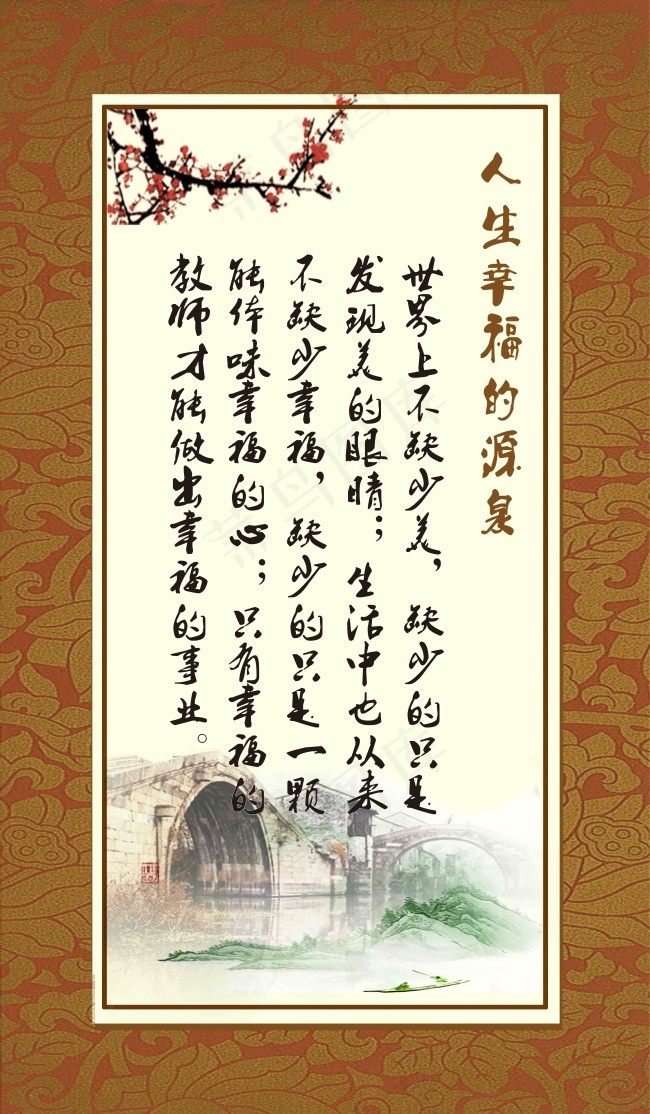 人生幸福的源泉
世界上不缺少美，缺少的只是
发现美的眼睛；生活中也从来
不缺少幸福，缺少的只是一颗
能体味幸福的心；只有幸福的
教师才能做出幸福的事业。